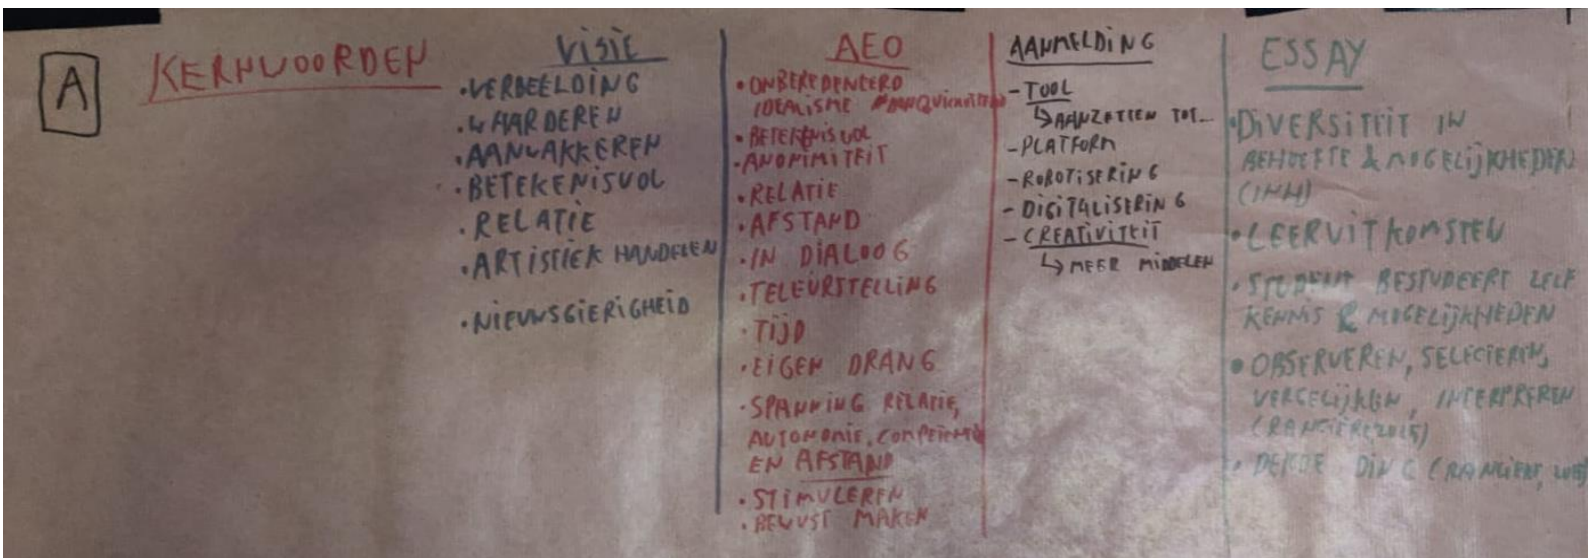 A
KERNWOORDEN
VISIE
• VERBEELDING
• WAARDEREN
• AANWAKKEREN
• BETEKENISVOL
• RELATIE
• ARTISTIEK HANDELEN
• NIEUWSGIERIGHEID
AEO
• ONBEREDENEERD
IDEALISME
• BETEKENISVOL
• ANONIMITEIT
• RELATIE
• AFSTAND
• IN DIALOOG
• TELEURSTELLING
• TIJD
• EIGEN DRANG
• SPANNING RELATIE,
AUTONOMIE, COMPETENTIE
EN AFSTAND
• STIMULEREN
• BEWUST MAKEN
AANMELDING
- TOOL
↳ AANZETTEN TOT...
- PLATFORM
- ROBOTISERING
- DIGITALISERING
- CREATIVITEIT
↳ MEER MIDDELEN
ESSAY
• DIVERSITEIT IN
BEHOEFTE & MOGELIJKHEDEN
• LEERUITKOMSTEN
• STUDENT BESTUDEERT ZELF
KENNIS & MOGELIJKHEDEN
• OBSERVEREN, SELECTEREN,
VERGELIJKEN, INTERPREREN
(RANCIERE, 2015)
• DERDE DING (RANCIERE, 2015)